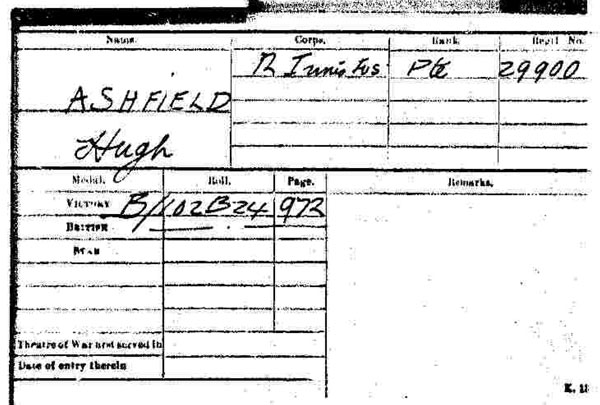 Name. Corps. Rank. Regtl. No.
R Innis Fus Pte 29900
ASHFIELD
Hugh
Medal. Roll. Page. Remarks.
VICTORY B/102B24 972
BRITISH
STAR
Theatre of War first served in
Date of entry therein